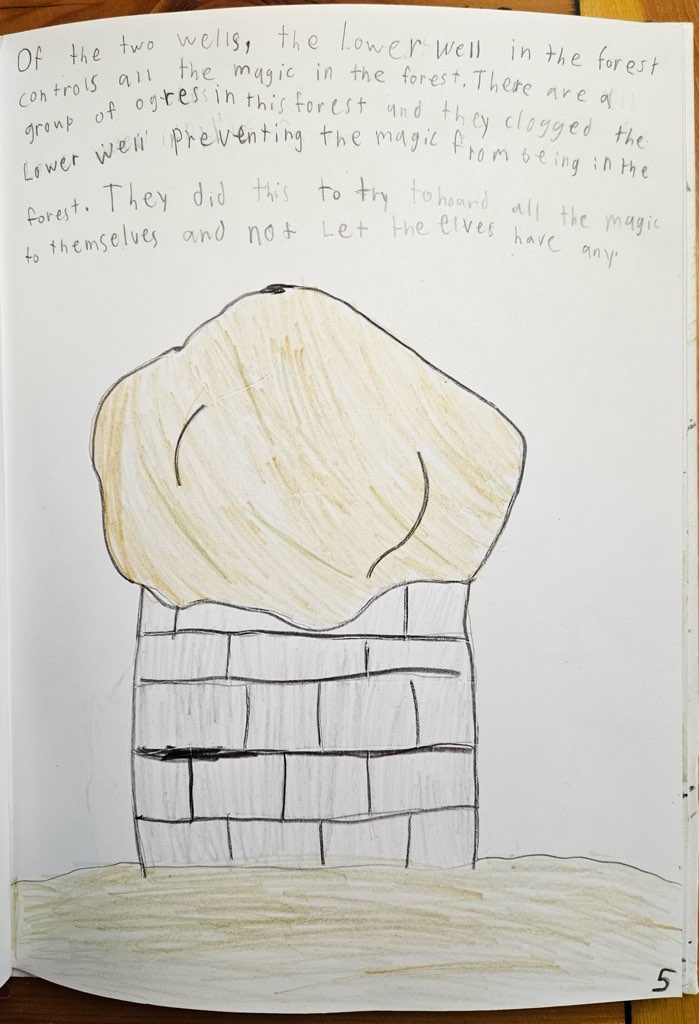 Of the two wells, the Lower well in the forest
controls all the magic in the forest. There are a
group of ogres in this forest and they clogged the
Lower well preventing the magic from being in the
forest. They did this to try to hoard all the magic
to themselves and not Let the elves have any.
5